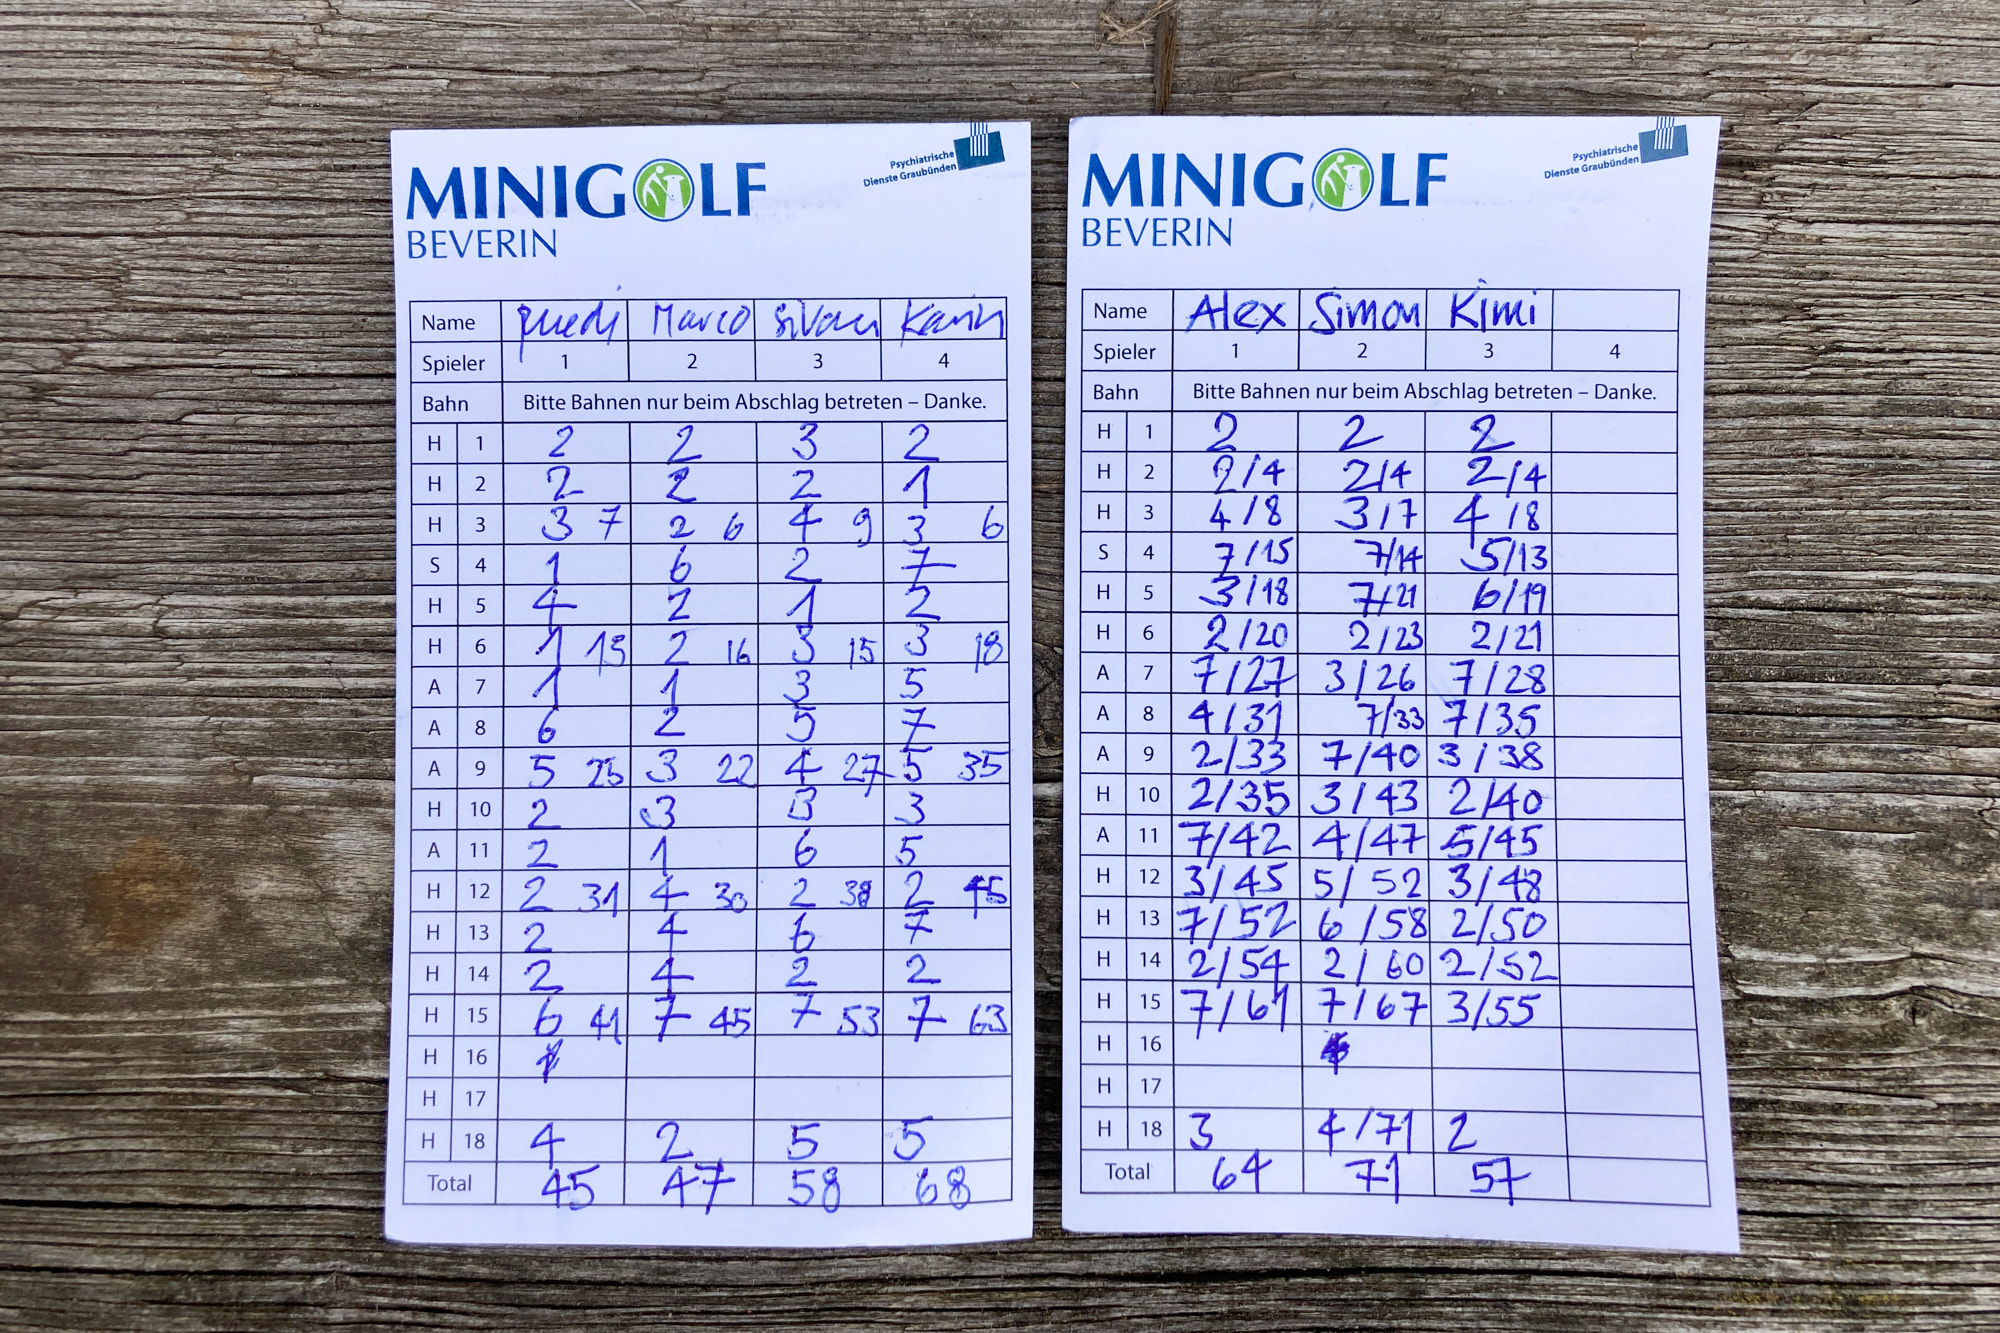 MINIGOLF
BEVERIN
Psychiatrische
Dienste Graubünden
Name Ruedi Marco Silvan Karin
Spieler 1 2 3 4
Bahn Bitte Bahnen nur beim Abschlag betreten – Danke.
H 1 2 2 3 2
H 2 2 2 2 1
H 3 3 7 2 6 4 9 3 6
S 4 1 6 2 7
H 5 4 2 1 2
H 6 1 13 2 16 3 15 3 18
A 7 1 1 3 5
A 8 6 2 5 7
A 9 5 25 3 22 4 27 5 35
H 10 2 3 3 3
A 11 2 1 6 5
H 12 2 31 4 30 2 38 2 45
H 13 2 4 6 7
H 14 2 4 2 2
H 15 6 41 7 45 7 53 7 63
H 16
H 17
H 18 4 2 5 5
Total 45 47 58 68
MINIGOLF
BEVERIN
Psychiatrische
Dienste Graubünden
Name Alex Simon Kimi
Spieler 1 2 3 4
Bahn Bitte Bahnen nur beim Abschlag betreten – Danke.
H 1 2 2 2
H 2 2/4 2/4 2/4
H 3 4/8 3/7 4/8
S 4 7/15 7/14 5/13
H 5 3/18 7/21 6/19
H 6 2/20 2/23 2/21
A 7 7/27 3/26 7/28
A 8 4/31 7/33 7/35
A 9 2/33 7/40 3/38
H 10 2/35 3/43 2/40
A 11 7/42 4/47 5/45
H 12 3/45 5/52 3/48
H 13 7/52 6/58 2/50
H 14 2/54 2/60 2/52
H 15 7/61 7/67 3/55
H 16
H 17
H 18 3 4/71 2
Total 64 71 57